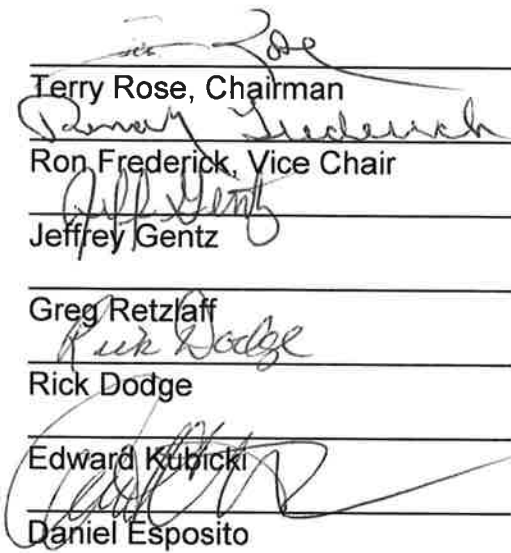 Rose
Terry Rose, Chairman
Ronald Frederick
Ron Frederick, Vice Chair
Jeff Gentz
Jeffrey Gentz
Greg Retzlaff
Rick Dodge
Rick Dodge
Edward Kubicki
Daniel Esposito